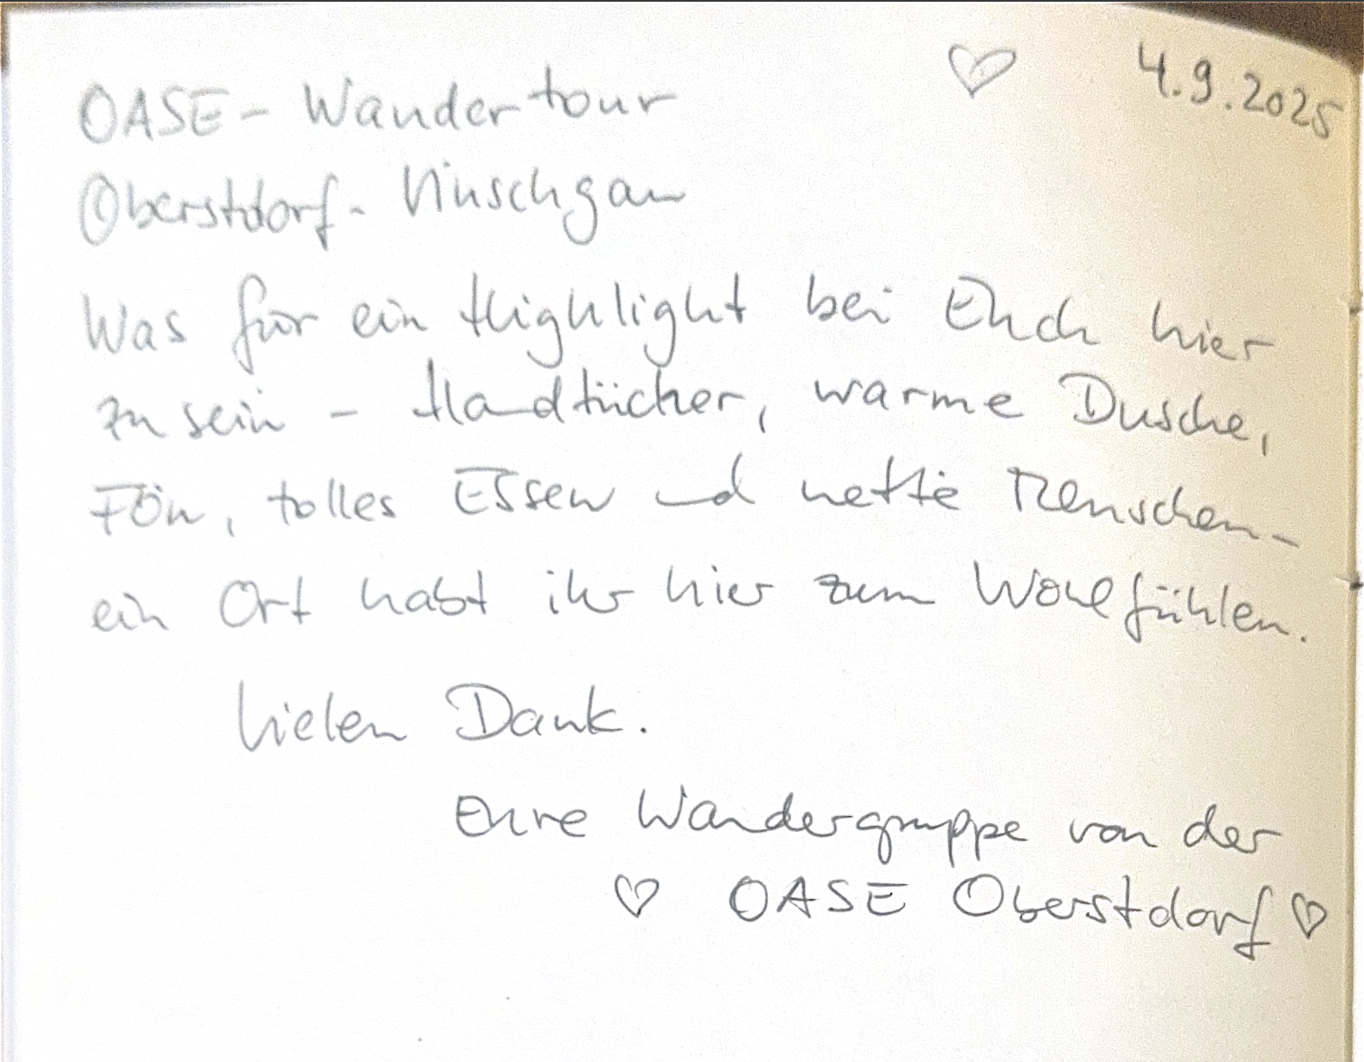 ♡ 4.9.2025
OASE - Wandertour
Oberstdorf - Vinschgau
Was für ein Highlight bei Euch hier
zu sein - Handtücher, warme Dusche,
Fön, tolles Essen und nette Menschen -
ein Ort habt ihr hier zum Wohlfühlen.
Vielen Dank.
Eure Wandergruppe von der
♡ OASE Oberstdorf ♡